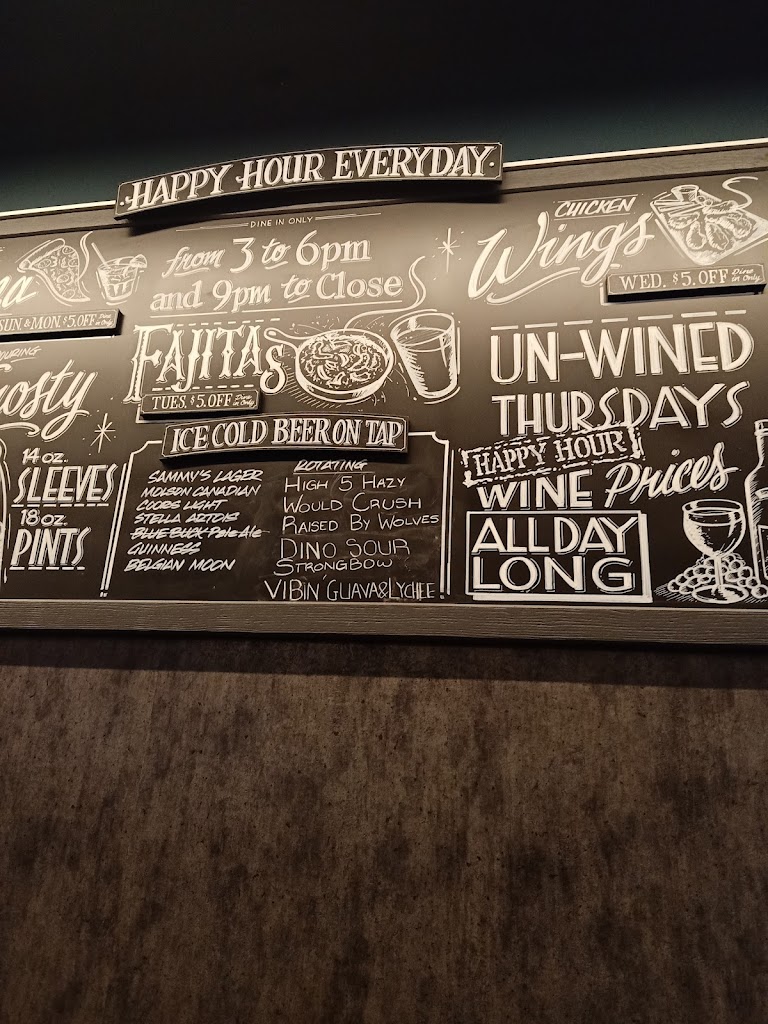 HAPPY HOUR EVERYDAY
DINE IN ONLY
from 3 to 6pm
and 9pm to Close
SUN & MON. $5.OFF Dine in Only
FAJITAS
TUES. $5.OFF Dine in Only
CHICKEN
Wings
WED. $5.OFF Dine in Only
14 oz.
SLEEVES
18 oz.
PINTS
ICE COLD BEER ON TAP
SAMMY'S LAGER
MOLSON CANADIAN
COORS LIGHT
STELLA ARTOIS
BLUE BUCK Pale Ale
GUINNESS
BELGIAN MOON
ROTATING
HIGH 5 HAZY
WOULD CRUSH
RAISED BY WOLVES
DINO SOUR
STRONGBOW
VIBIN' GUAVA&LYCHEE
UN-WINED
THURSDAYS
HAPPY HOUR
WINE Prices
ALL DAY
LONG